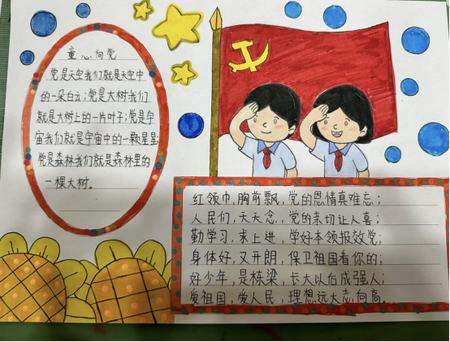 童心向党
党是天空我们就是天空中
的一朵白云;党是大树我们
就是大树上的一片叶子;党是宇
宙我们就是宇宙中的一颗星星
党是森林我们就是森林里的
一棵大树。
红领巾,胸前飘,党的恩情真难忘;
人民们,天天念,党的亲切让人喜;
勤学习,求上进,学好本领报效党;
身体好,又开朗,保卫祖国看你的;
好少年,是栋梁,长大以后成强人;
爱祖国,爱人民,理想远大志向高。